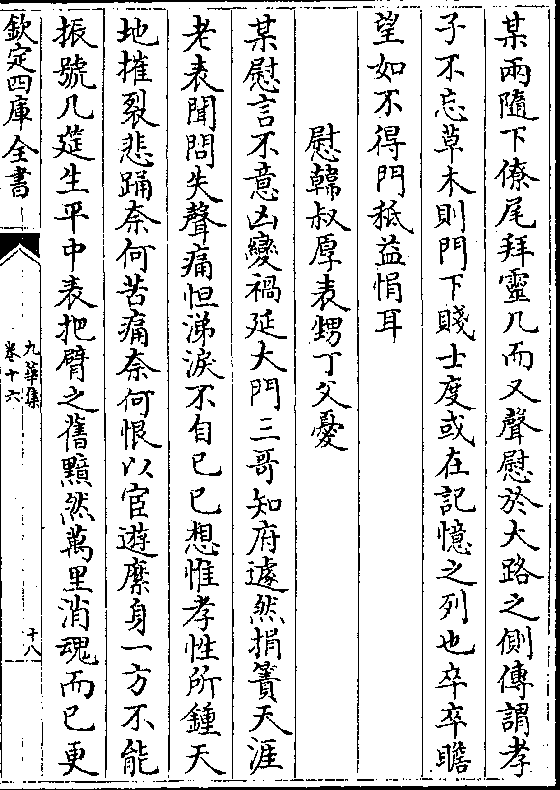 某兩隨下僚尾拜靈几而又聲慰於大路之側傳謂孝
子不忘草木則門下賤士度或在記憶之列也卒卒瞻
望如不得門秪益悁耳
慰韓叔厚表甥丁父憂
某慰言不意凶變禍延大門三哥知府遽然捐簀天涯
老表聞問失聲痛怛涕淚不自已已想惟孝性所鍾天
地摧裂悲踊奈何苦痛奈何恨以宦遊縻身一方不能
振號几筵生平中表把臂之舊黯然萬里消魂而已更
欽定四庫全書
九華集
卷十六
十八